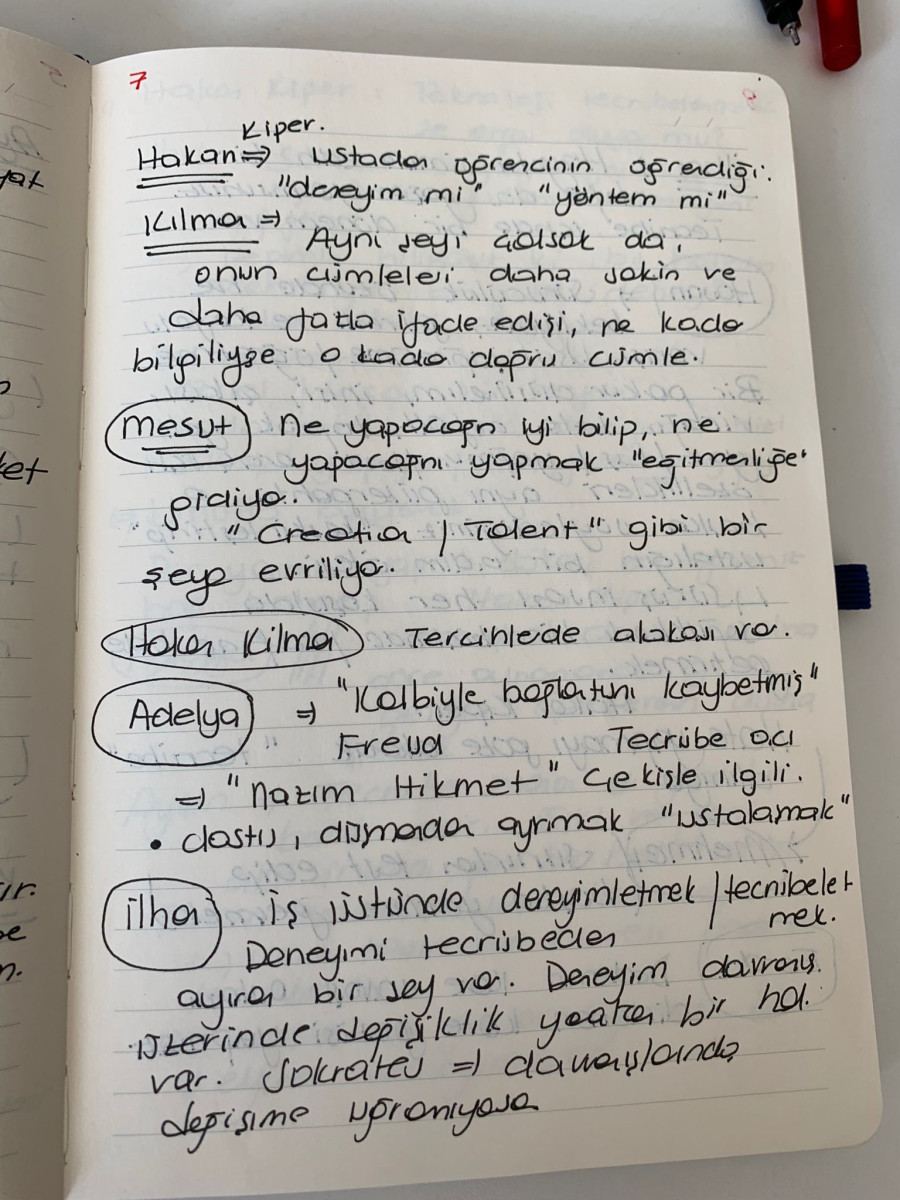 7
8
Kiper.
Hakan ⇒ ustadan öğrencinin öğrendiği.
"deneyim mi" "yöntem mi"
Kılma ⇒ Aynı şeyi çalsak da,
onun cümleleri daha sakin ve
daha fazla ifade edişi, ne kadar
bilgiliyse o kadar doğru cümle.
Mesut Ne yapacağın iyi bilip, ne
yapacağını yapmak "eğitmenliğe"
gidiyor.
" Creatia / Talent " gibi bir
şeye evriliyor.
Hakan Kılma Tercihlerde alakası var.
Adelya ⇒ "Kalbiyle bağlatını kaybetmiş"
Freud Tecrübe acı
⇒ "Nazım Hikmet" Çekişle ilgili.
• dostu, düşmandan ayırmak "ustalamak"
ilhan İş üstünde deneyimletmek / tecrübelet
mek.
Deneyimi tecrübeden
ayıran bir şey var. Deneyim davranış
üzerinde değişiklik yaratan bir hal
var. Sokrates ⇒ davranışlarında
değişime uğramıyosa
yat
ket
ır.